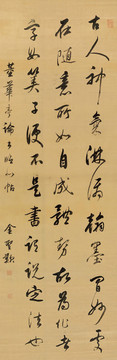 古人神氣淋漓翰墨間妙處
在隨意所如自成體勢故為作者
字如筭子便不是書謂說定法也
董華亭論帖
金聖歎